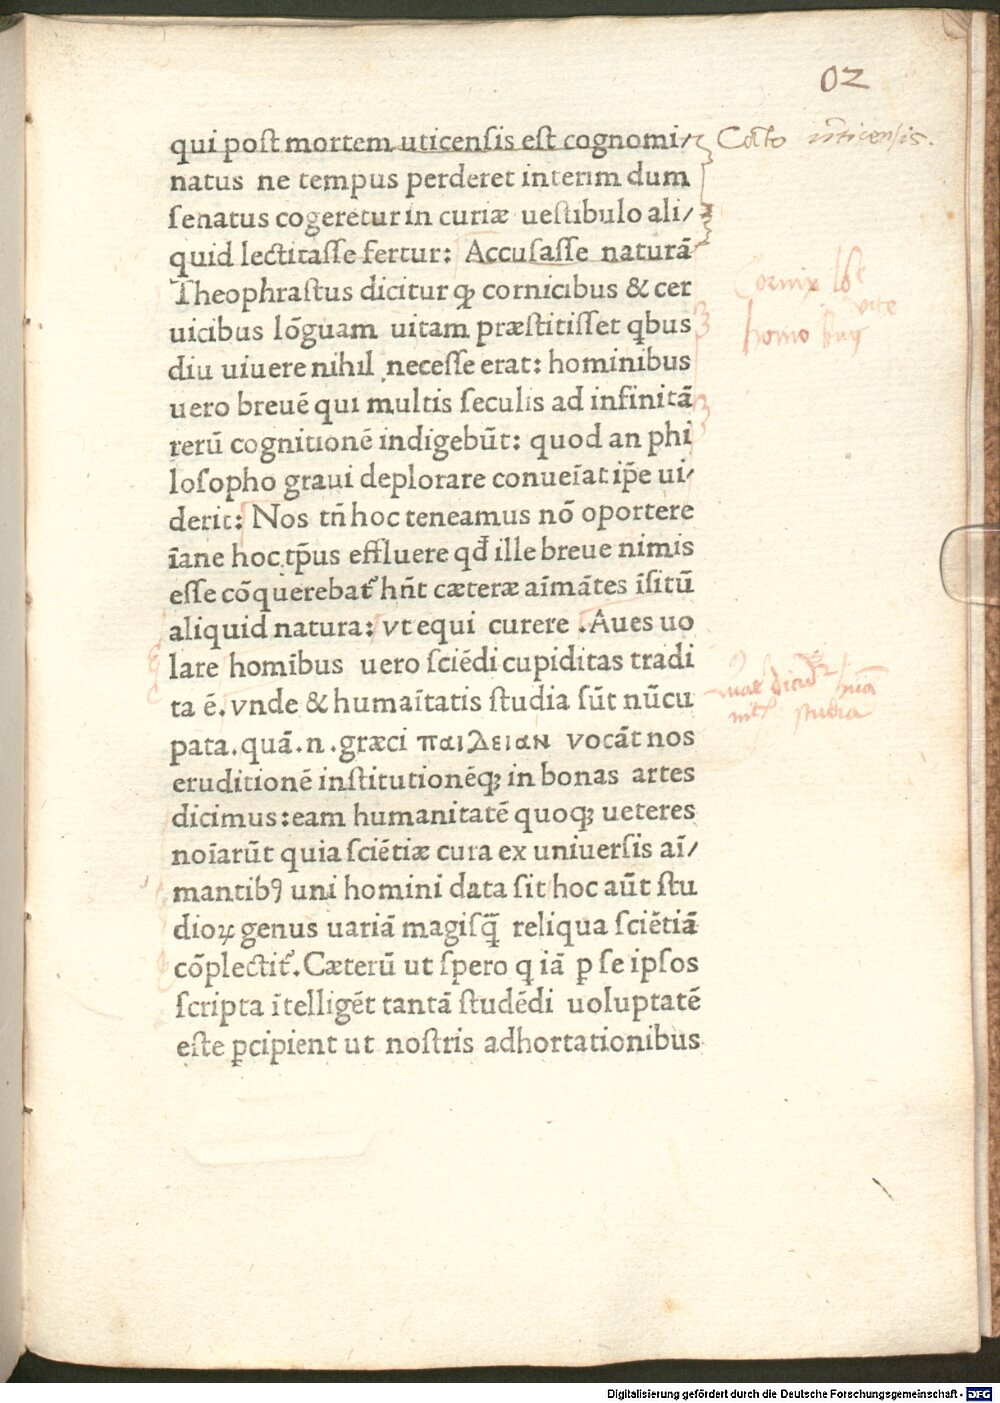 02
qui post mortem uticensis est cognomi/
Cato Vticensis.
natus ne tempus perderet interim dum
senatus cogeretur in curiæ uestibulo ali/
quid lectitasse fertur: Accusasse naturā
Theophrastus dicitur ꝙ cornicibus & cer
uicibus lōguam uitam præstitisset qbus
homo
diu uiuere nihil necesse erat: hominibus
uero breuē qui multis seculis ad infinitā
rerū cognitionē indigebūt: quod an phi
losopho graui deplorare conueīat ip̄e ui/
derit: Nos tn̄ hoc teneamus nō oportere
īane hoc tp̄us effluere qđ ille breue nimis
esse cōquerebat᷑ hn̄t cæteræ aīmātes īsitū
aliquid natura: vt equi curere .Aues uo
lare homībus uero sciēdi cupiditas tradi
ta ē. vnde & humaītatis studia sūt nūcu
studia
pata.quā.n.græci παιδειαν vocāt nos
eruditionē institutionēq; in bonas artes
dicimus:eam humanitatē quoq; ueteres
noīarūt quia sciētiæ cura ex uniuersis aī/
mantibꝰ uni homini data sit hoc aūt stu
dioꝝ genus uariā magisq̄ reliqua sciētiā
cōplectit᷑. Cæterū ut spero q iā ꝑ se ipsos
scripta ītelligēt tantā studēdi uoluptatē
este ꝑcipient ut nostris adhortationibus
Digitalisierung gefördert durch die Deutsche Forschungsgemeinschaft - DFG